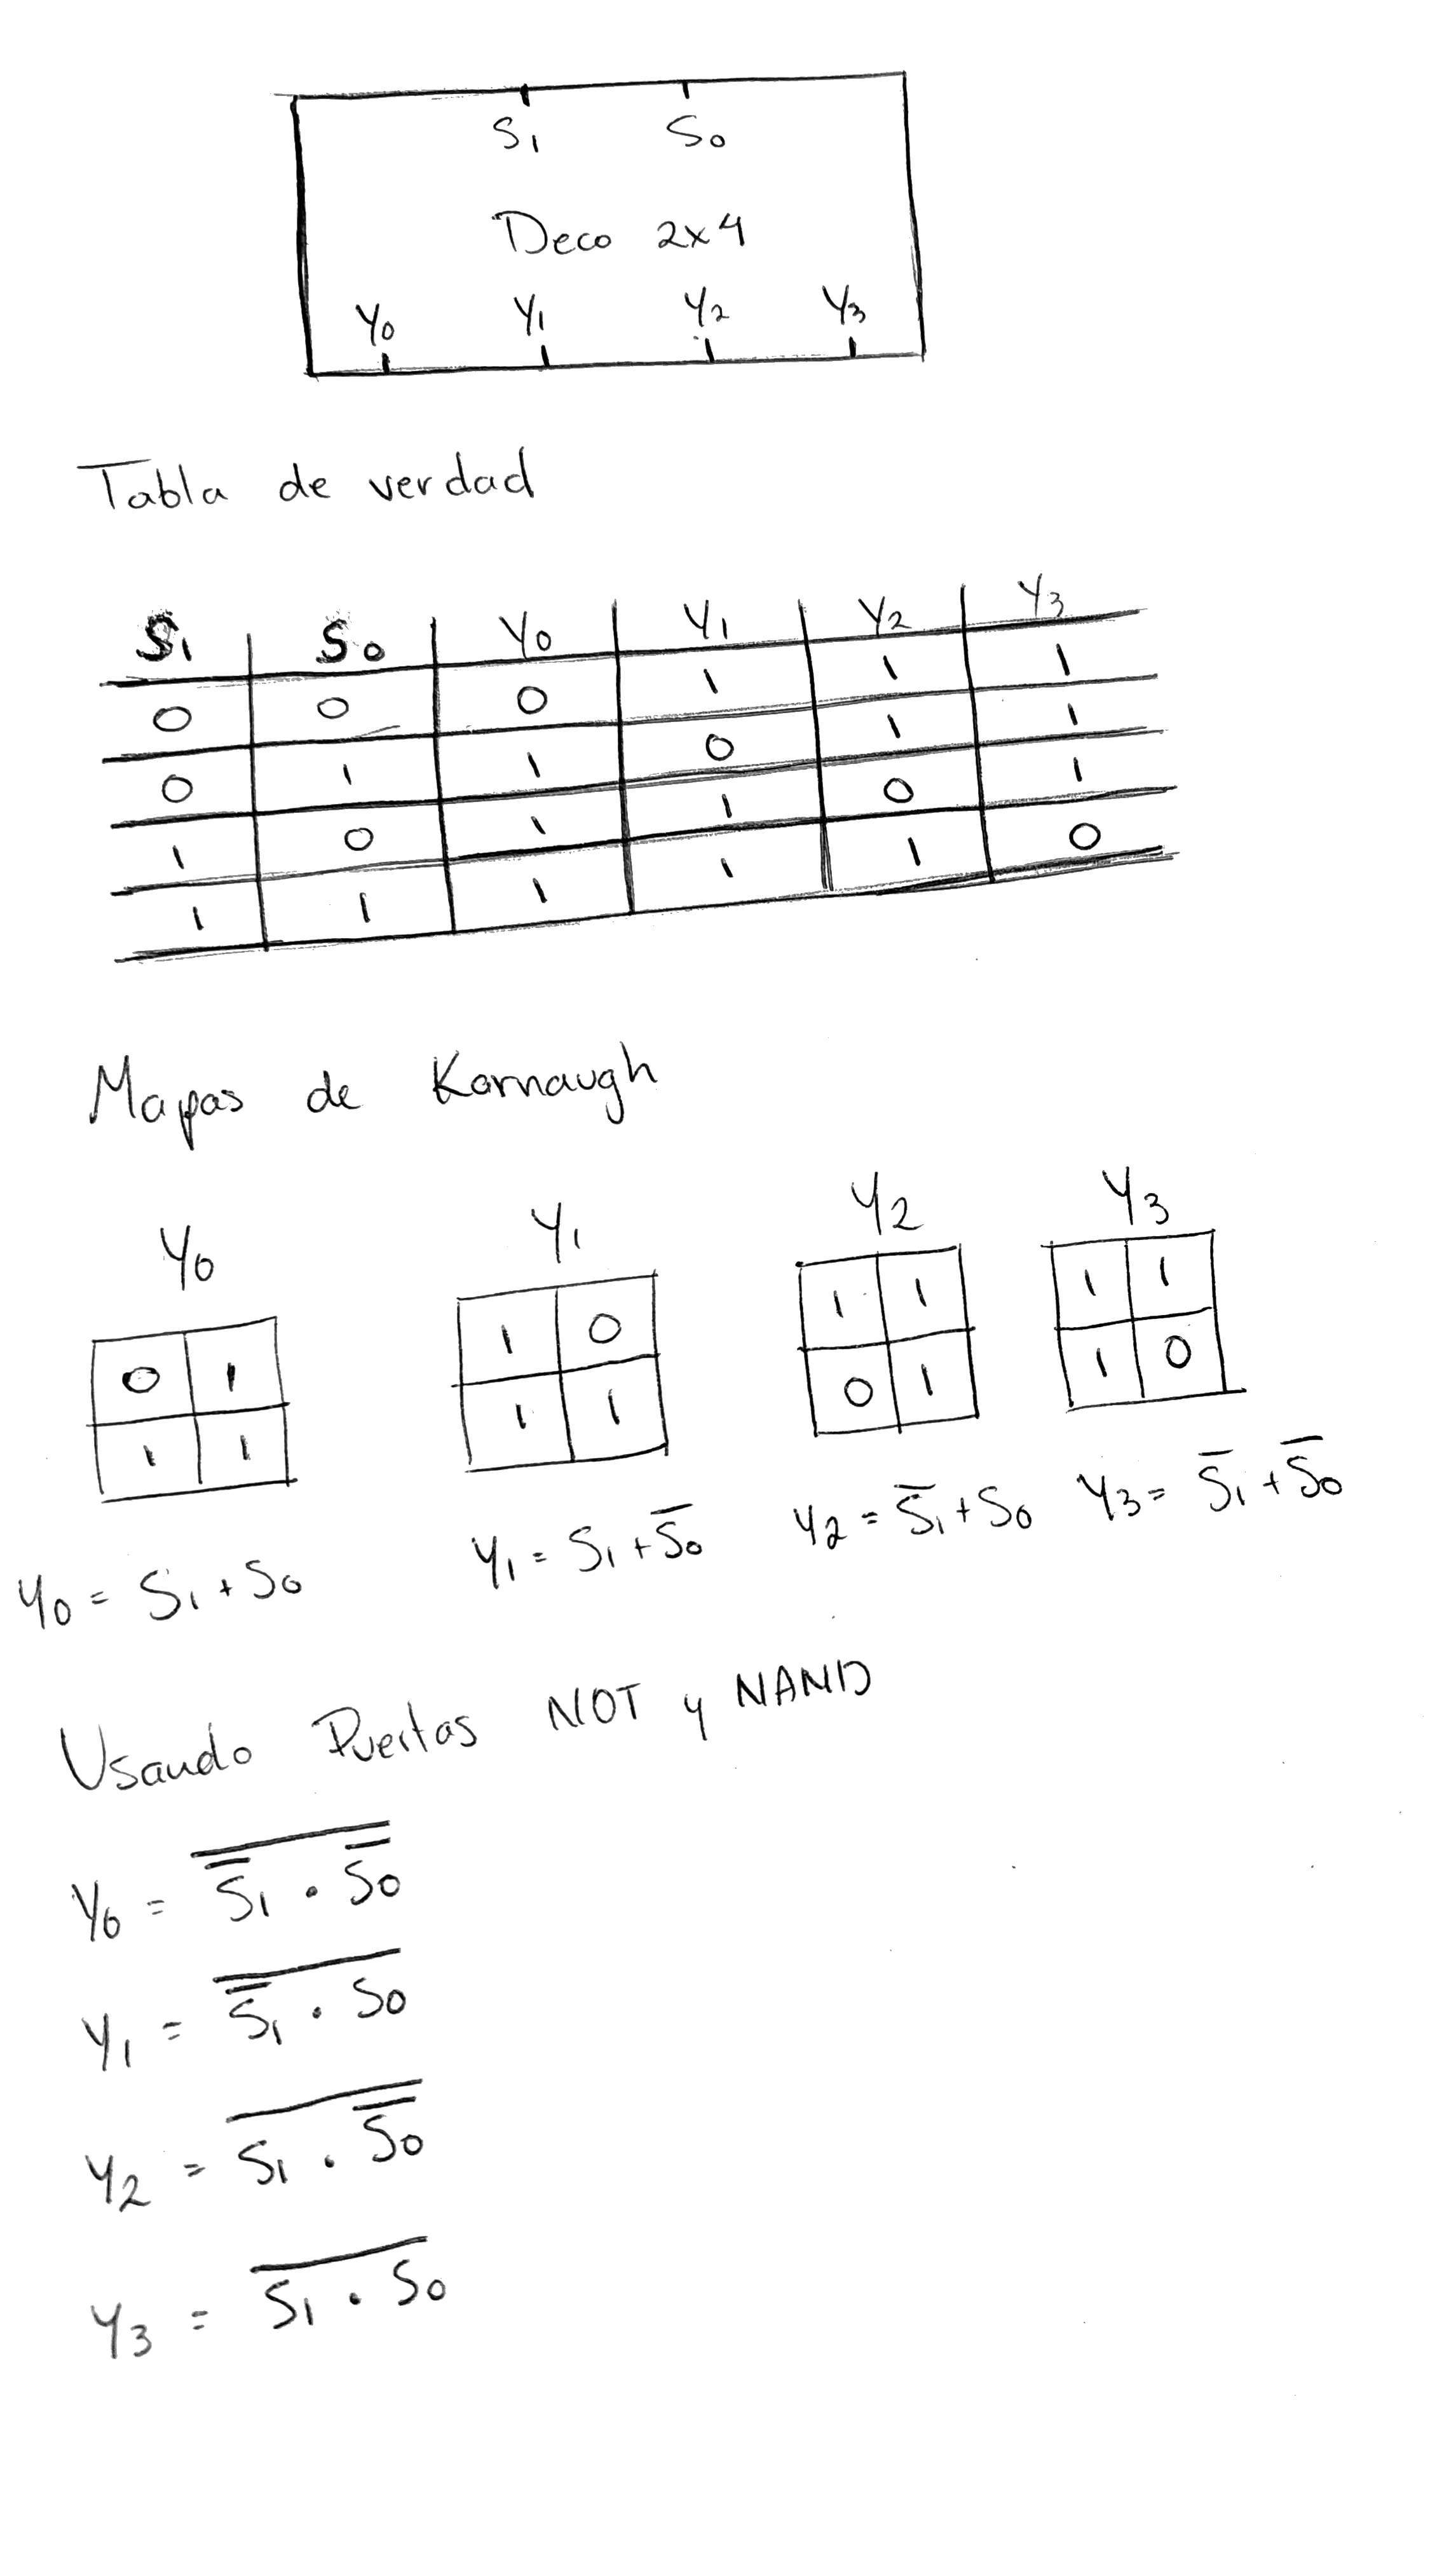 S₁ S₀
Deco 2x4
Y₀ Y₁ Y₂ Y₃
Tabla de verdad
S₁ S₀ Y₀ Y₁ Y₂ Y₃
0 0 0 1 1 1
0 1 1 0 1 1
1 0 1 1 0 1
1 1 1 1 1 0
Mapas de Karnaugh
Y₀ Y₁ Y₂ Y₃
0 1 1 0 1 1 1 1
1 1 1 1 0 1 1 0
Y₀ = S₁ + S₀ Y₁ = S₁ + S̅₀ Y₂ = S̅₁ + S₀ Y₃ = S̅₁ + S̅₀
Usando Puertas NOT y NAND
Y₀ = \overline{\overline{\overline{S₁}} · \overline{\overline{S₀}}}
Y₁ = \overline{\overline{\overline{S₁}} · S₀}
Y₂ = \overline{S₁ · \overline{\overline{S₀}}}
Y₃ = \overline{S₁ · S₀}